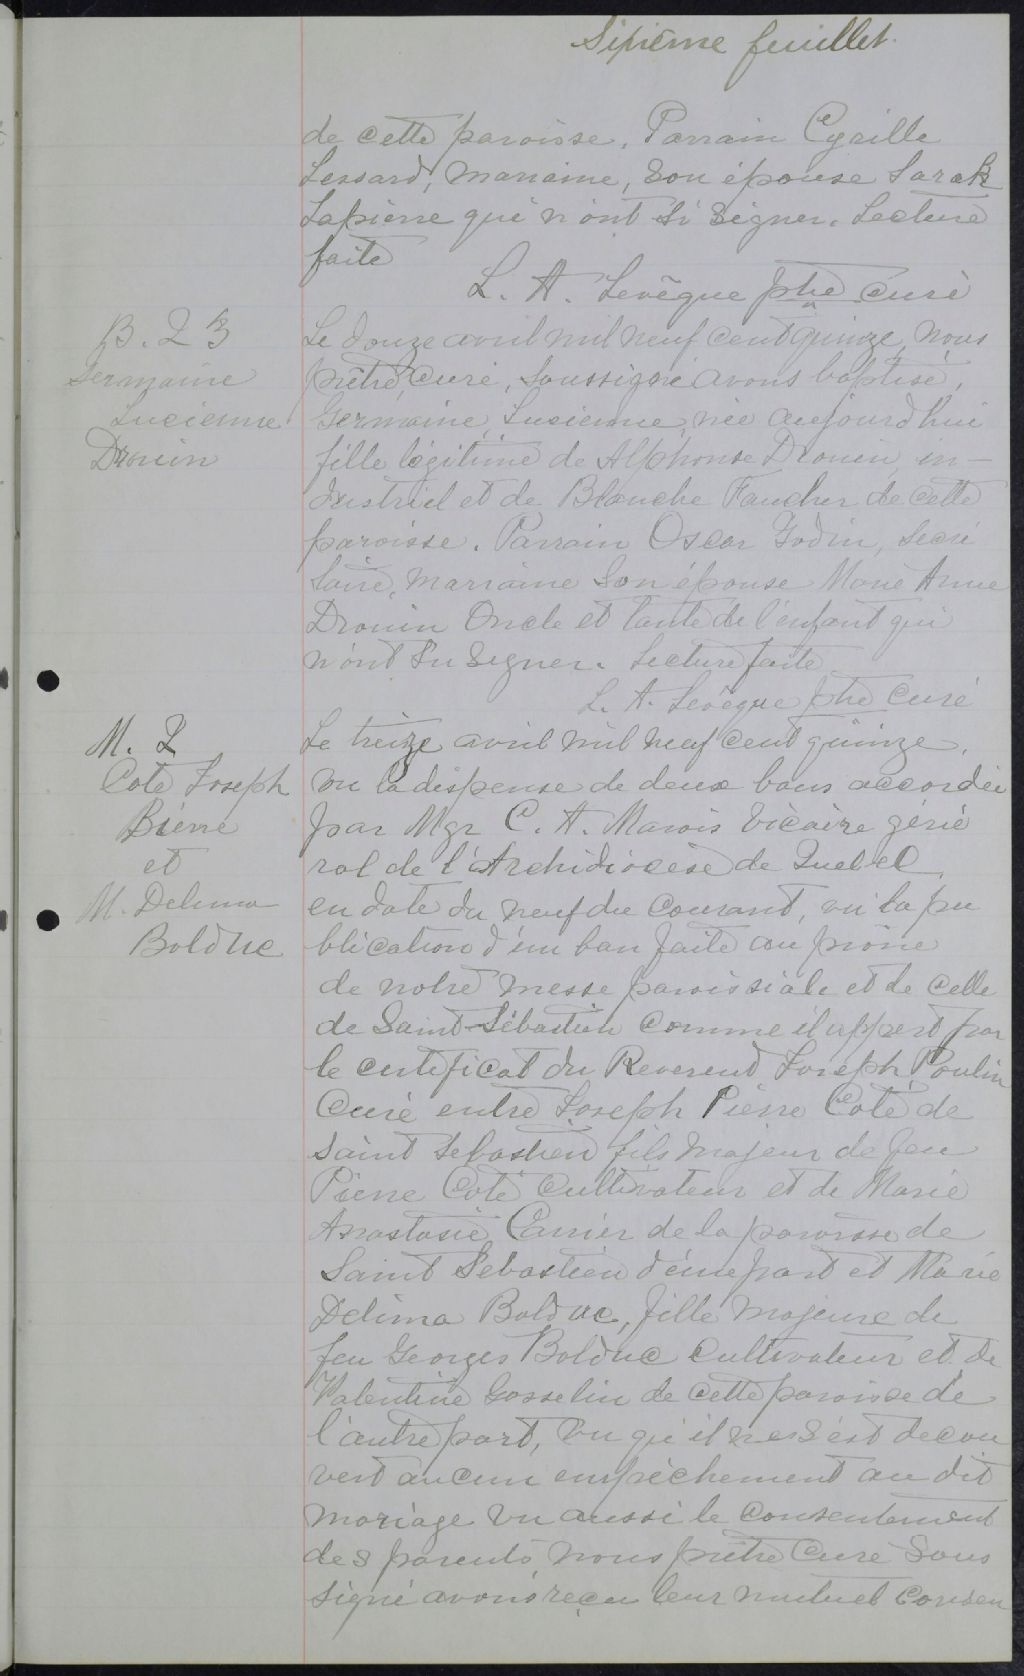 Sixième feuillet.
de cette paroisse. Parrain Cyrille
Lessard, marraine, son épouse Sarah
Lapierre qui n'ont su signer. Lecture
faite
L. A. Levêque ptre curé
B. 23
Germaine
Lucienne
Drouin
Le douze avril mil neuf cent quinze, nous
prêtre, curé, soussigné avons baptisé,
Germaine, Lucienne, née aujourd'hui
fille légitime de Alphonse Drouin in-
dustriel et de Blanche Faucher de cette
paroisse. Parrain Oscar Godin, secré
taire, marraine son épouse Marie Anne
Drouin Oncle et tante de l'enfant qui
n'ont su signer. Lecture faite
L. A. Levêque ptre curé
M. 2
Coté Joseph
Pierre
et
M. Delima
Bolduc
Le treize avril mil neuf cent quinze,
vu la dispense de deux bans accordée
par Mgr C. A. Marois Vicaire géné
ral de l'Archidiocèse de Quebec,
en date du neuf du courant, vu la pu
blication d'un ban faite au prône
de notre messe paroissiale et de celle
de Saint-Sébastien comme il appert par
le certificat du Reverend Joseph Poulin
Curé entre Joseph Pierre Coté de
Saint Sebastien fils majeur de feu
Pierre Coté Cultivateur et de Marie
Anastasie Carrier de la paroisse de
Saint Sebastien d'une part et Marie
Delima Bolduc, fille majeure de
feu Georges Bolduc cultivateur et de
Valentine Gosselin de cette paroisse de
l'autre part, vu qu'il ne s'est decou
vert aucun empêchement au dit
mariage vu aussi le consentement
des parents nous prêtre Curé Sous
signé avons reçu leur mutuel consen